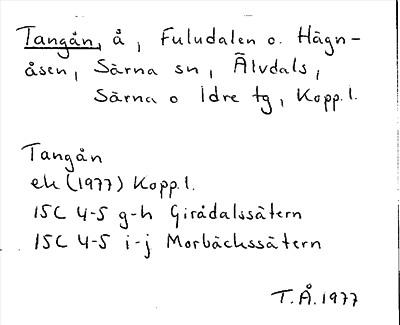 Tangån, å, Fuludalen o. Hägn-
åsen, Särna sn, Älvdals,
Särna o Idre tg, Kopp.l.
Tangån
ek (1977) Kopp.l.
15C 4-5 g-h Girådalssätern
15C 4-5 i-j Morbäckssätern
T.Å.1977